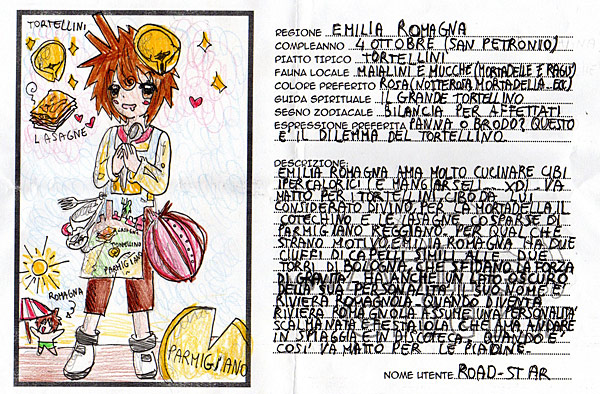 TORTELLINI
LASAGNE
LASAGNE
TORTELLINO
PARMIGIANO
ROMAGNA
PARMIGIANO
REGIONE EMILIA ROMAGNA
COMPLEANNO 4 OTTOBRE (SAN PETRONIO)
PIATTO TIPICO TORTELLINI
FAUNA LOCALE MAIALINI E MUCCHE (MORTADELLE E RAGÙ)
COLORE PREFERITO ROSA (NOTTE ROSA, MORTADELLA.. ECC)
GUIDA SPIRITUALE IL GRANDE TORTELLINO
SEGNO ZODIACALE BILANCIA PER AFFETTATI
ESPRESSIONE PREFERITA PANNA O BRODO? QUESTO
È IL DILEMMA DEL TORTELLINO.
DESCRIZIONE:
EMILIA ROMAGNA AMA MOLTO CUCINARE CIBI
IPERCALORICI (E MANGIARSELI... XD). VA
MATTO PER I TORTELLINI, CIBO DA LUI
CONSIDERATO DIVINO, PER LA MORTADELLA, IL
COTECHINO E LE LASAGNE COSPARSE DI
PARMIGIANO REGGIANO. PER QUALCHE
STRANO MOTIVO, EMILIA ROMAGNA HA DUE
CIUFFI DI CAPELLI SIMILI ALLE DUE
TORRI DI BOLOGNA, CHE SFIDANO LA FORZA
DI GRAVITÀ! HA ANCHE UN LATO OSCURO
DELLA SUA PERSONALITÀ.. IL SUO NOME È:
RIVIERA ROMAGNOLA. QUANDO DIVENTA
RIVIERA ROMAGNOLA ASSUME UNA PERSONALITÀ
SCALMANATA E FESTAIOLA, CHE AMA ANDARE
IN SPIAGGIA E IN DISCOTECA. QUANDO È
COSÌ VA MATTO PER LE PIADINE.
NOME UTENTE ROAD-STAR